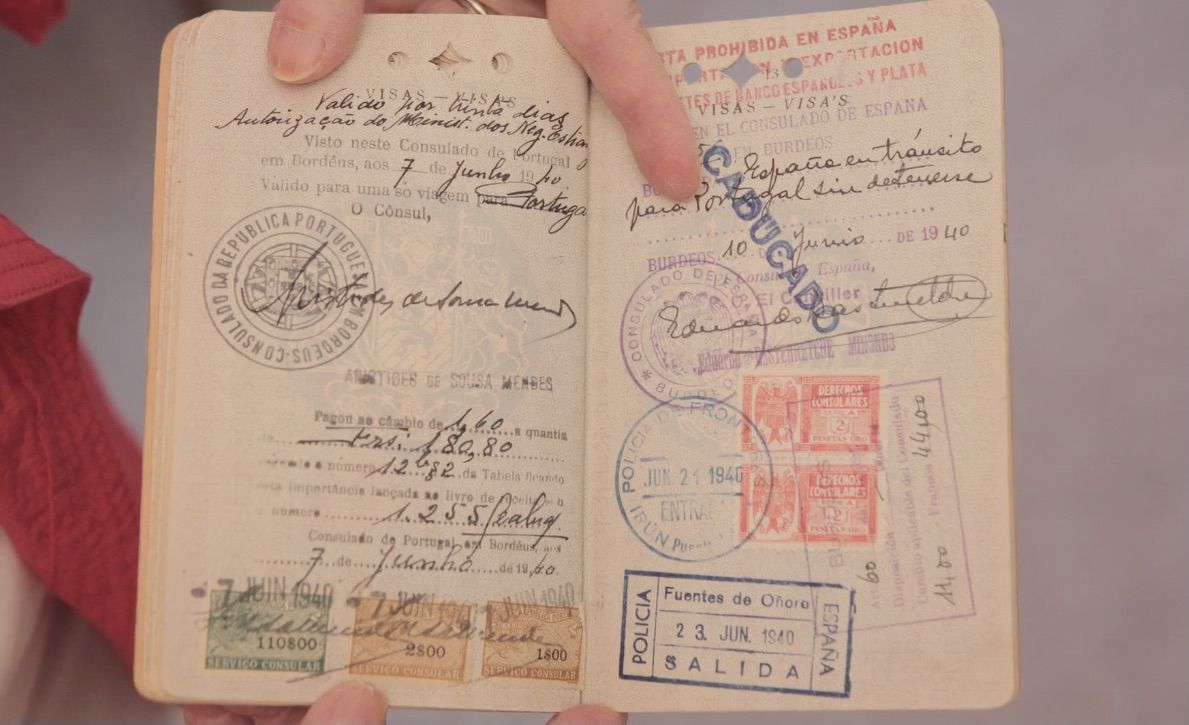 VISAS — VISA'S
Valido por trinta dias
Autorização do Minist. dos Neg.
Visto neste Consulado de Portugal
em Bordéus, aos 7 de Junho 1940
Valido para uma só viagem para Portugal
O Cônsul,
CONSULADO DA REPUBLICA PORTUGUESA EM BORDEUS
Aristides de Sousa Mendes
ARISTIDES DE SOUSA MENDES
Pagou ao câmbio de 1,60 a quantia
180,80
o número 12 da Tabela ficando
esta importância lançada no livro de Receita
numero 1.255
Consulado de Portugal em Bordéus, aos
7 de Junho de 1940
7 JUIN 1940
7 JUIN 1940
JUIN 1940
110$00
SERVIÇO CONSULAR
2$00
SERVIÇO CONSULAR
1$00
SERVIÇO CONSULAR
PROHIBIDA EN ESPAÑA
EXPORTACION
DE BANCO ESPAÑOLES Y PLATA
13
VISAS — VISA'S
EN EL CONSULADO DE ESPAÑA
EN BURDEOS
España en tránsito
para Portugal sin detenerse
BURDEOS 10 Junio DE 1940
El Consul de España,
El Canciller
CADUCADO
CONSULADO DE ESPAÑA
* BURDEOS
Eduardo
POLICIA DE FRONTERA
JUN. 21 1940
ENTRADA
IRUN
DERECHOS
CONSULARES
2
PESETAS ORO
DERECHOS
CONSULARES
PESETAS ORO
Art. 60
Disposición
Cambio aplicable del Consulado
Francos 44,00
11,00
POLICIA
Fuentes de Oñoro
23 JUN. 1940
SALIDA
ESPAÑA